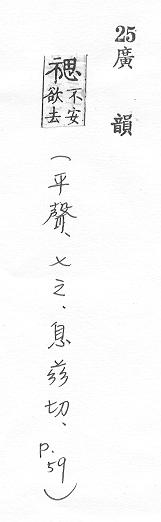 25 廣韻
禗 不安欲去 (平聲、七之、息茲切、p.59)